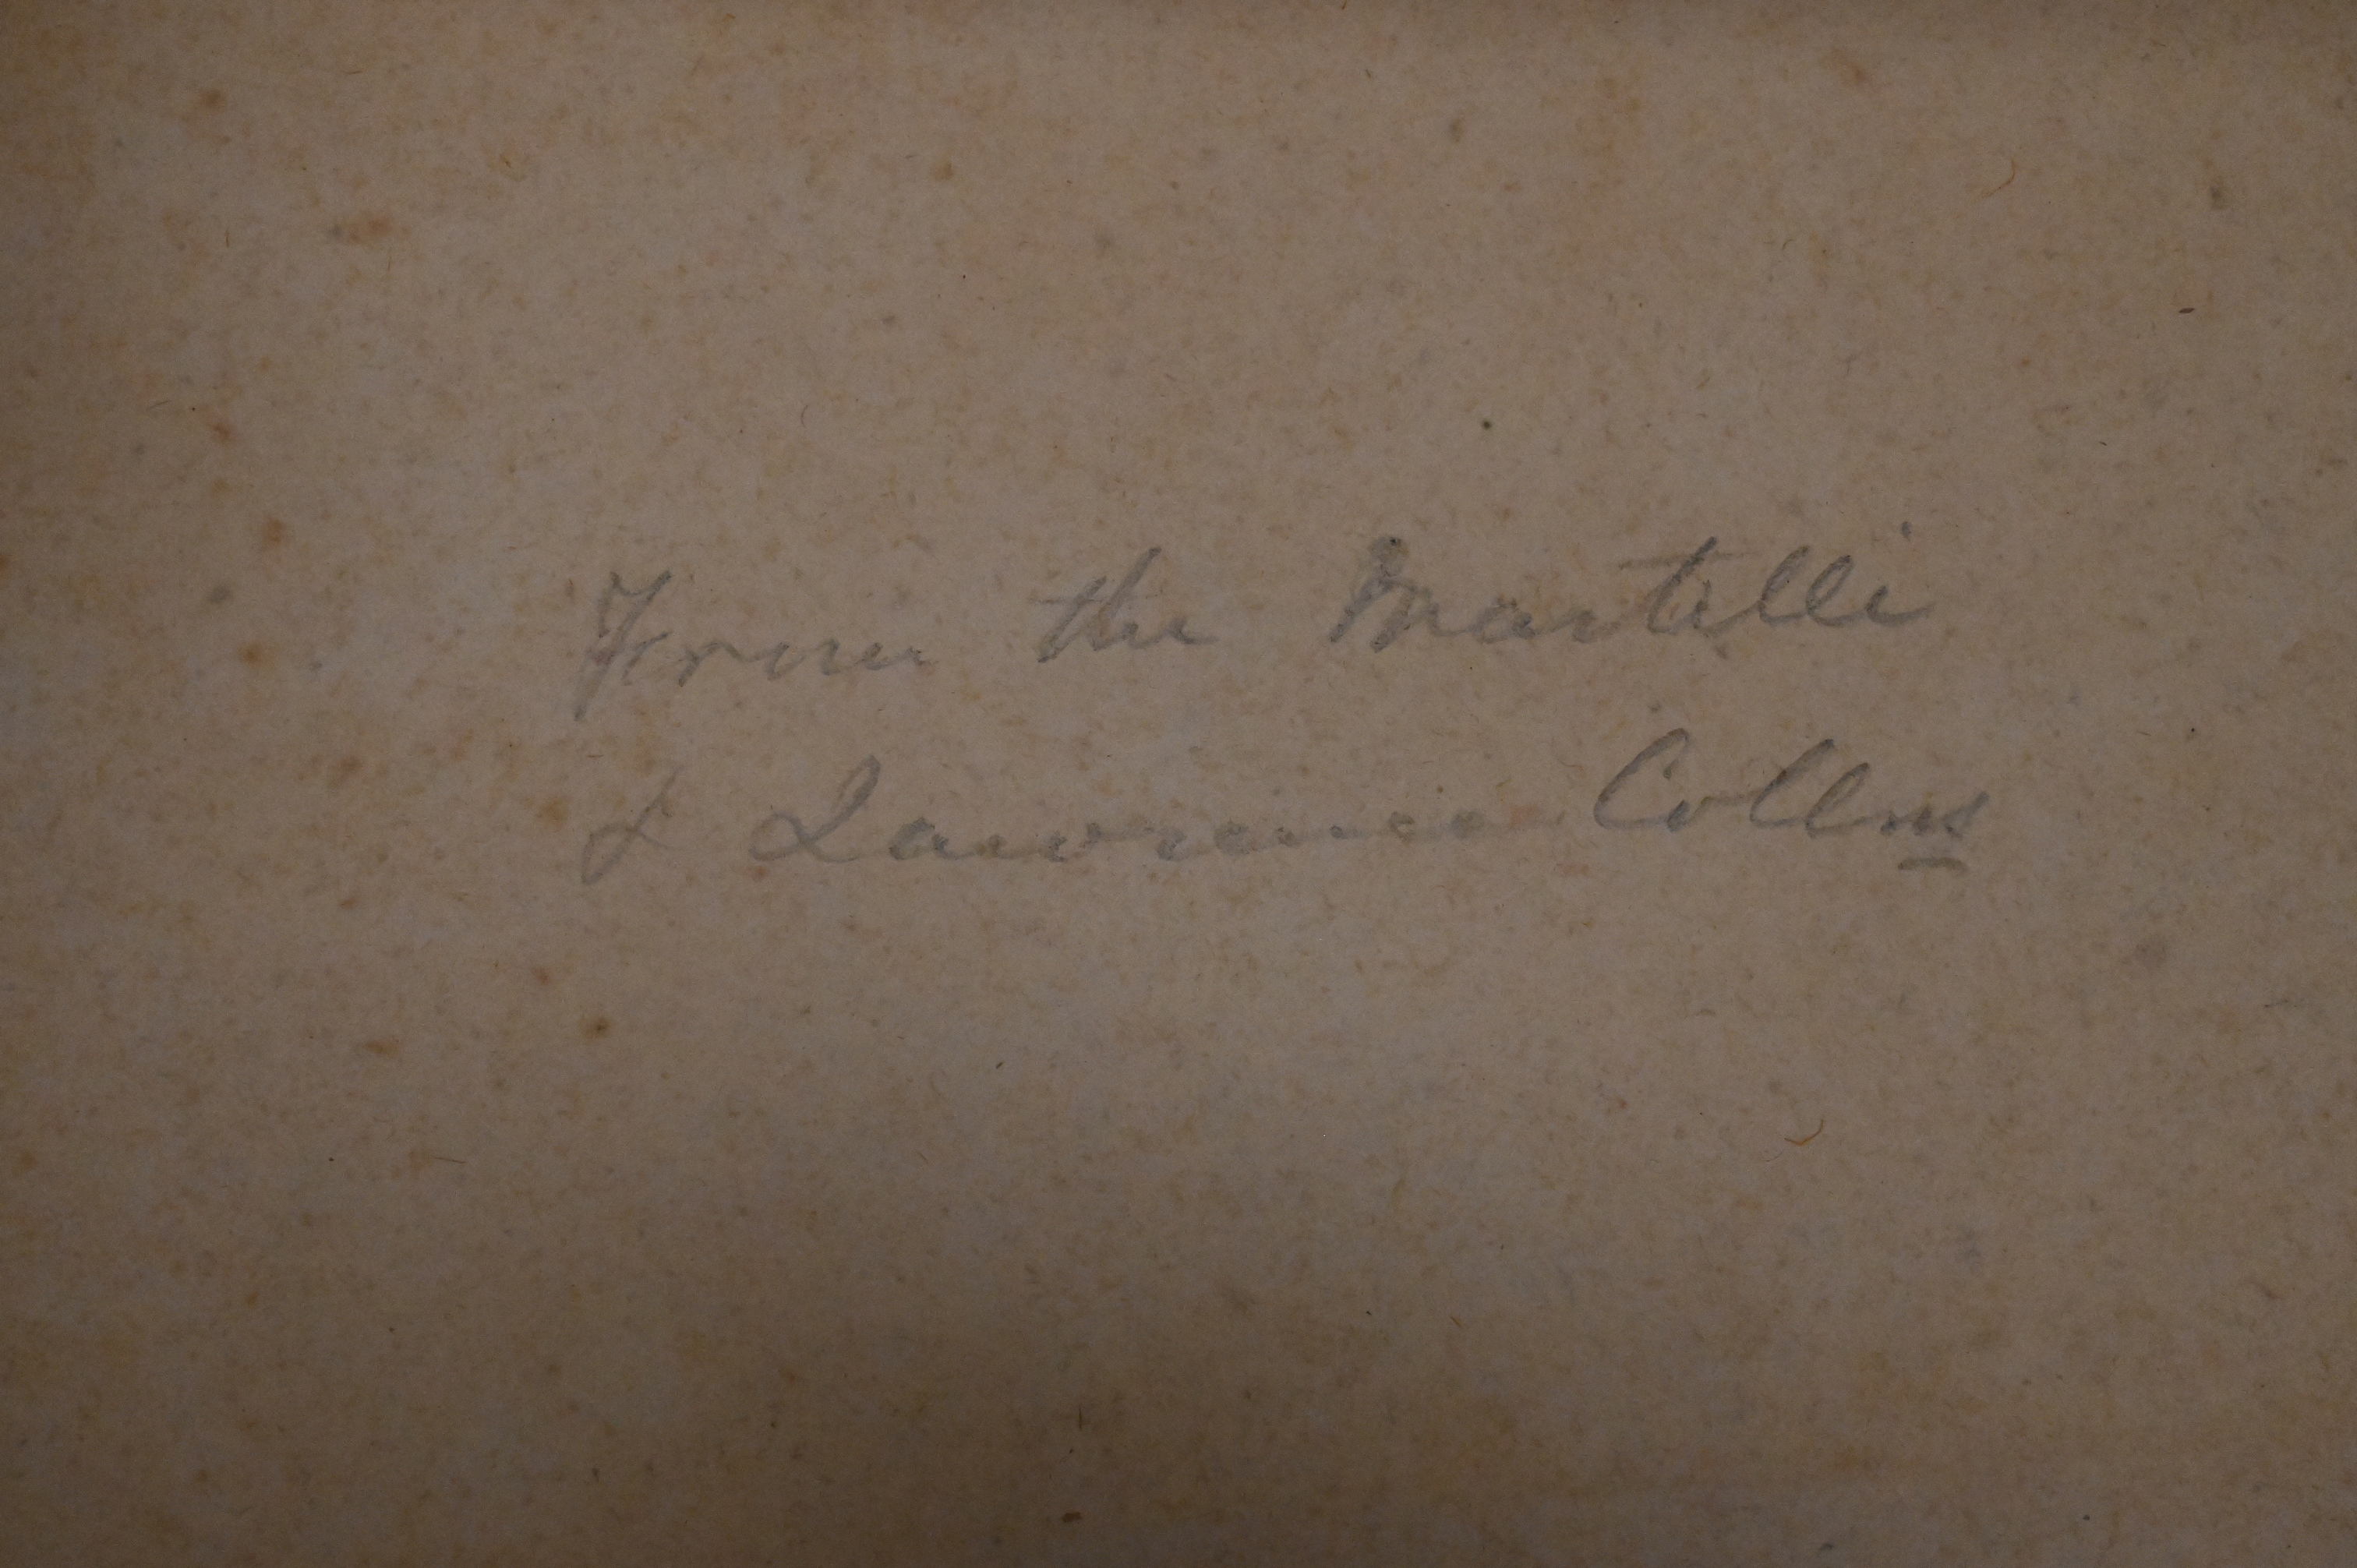 From the Martelli
& Lawrence Collns